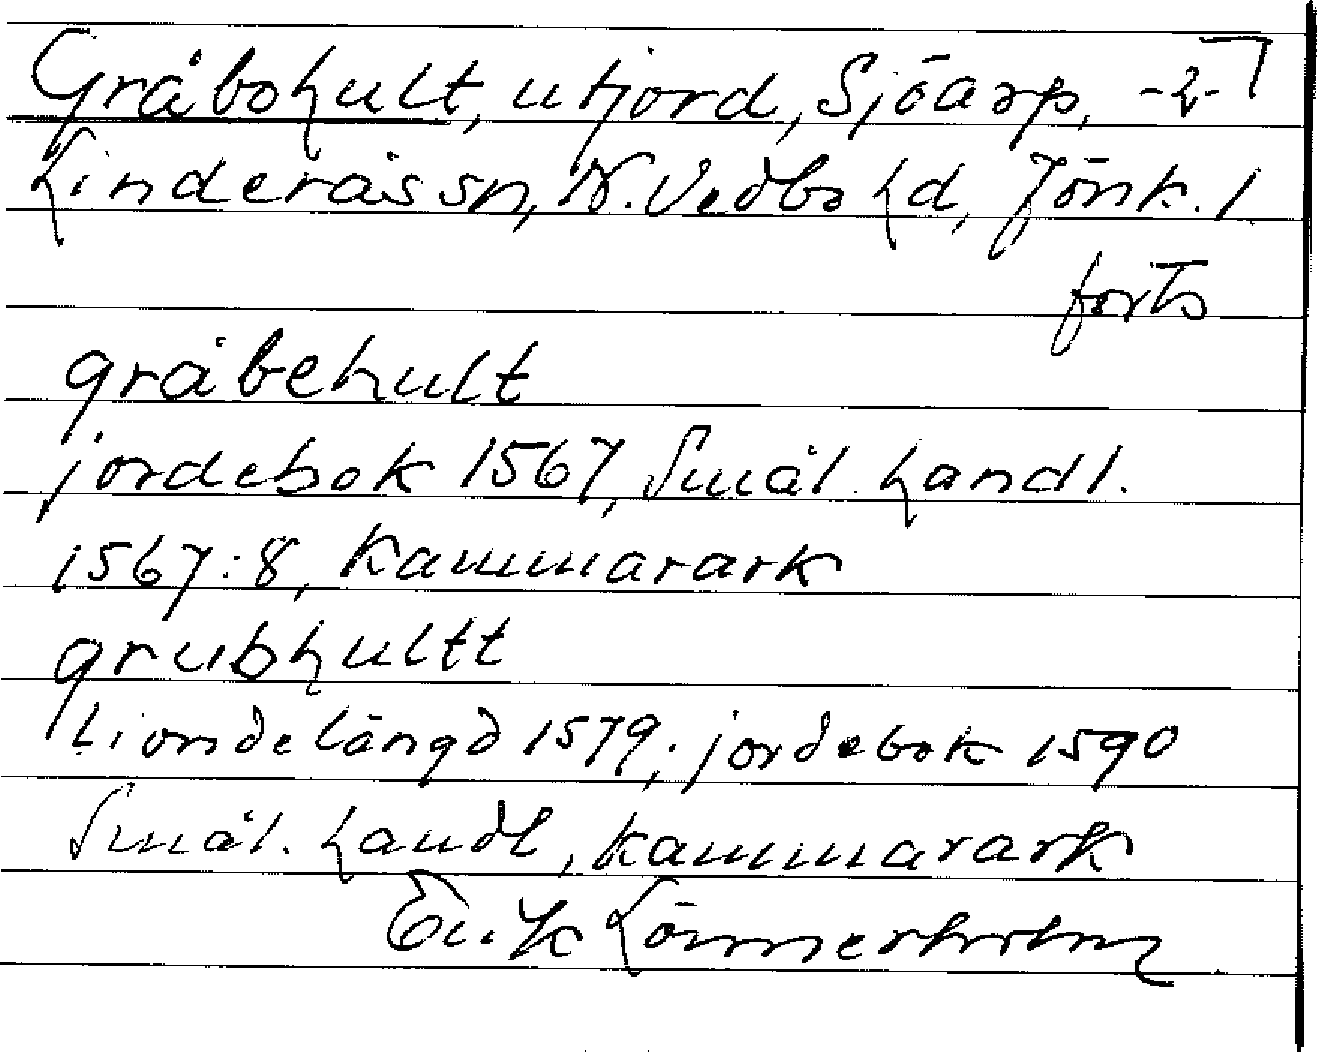 Gråbohult, utjord, Sjöarp, -2-
Linderås sn, N. Vedbo hd, Jönk. l.
forts
gråbehult
jordebok 1567, Smål. handl.
1567:8, Kammarark
grubhultt
tiondelängd 1579; jordebok 1590
Smål. handl, kammarark
Erik Lönnerholm